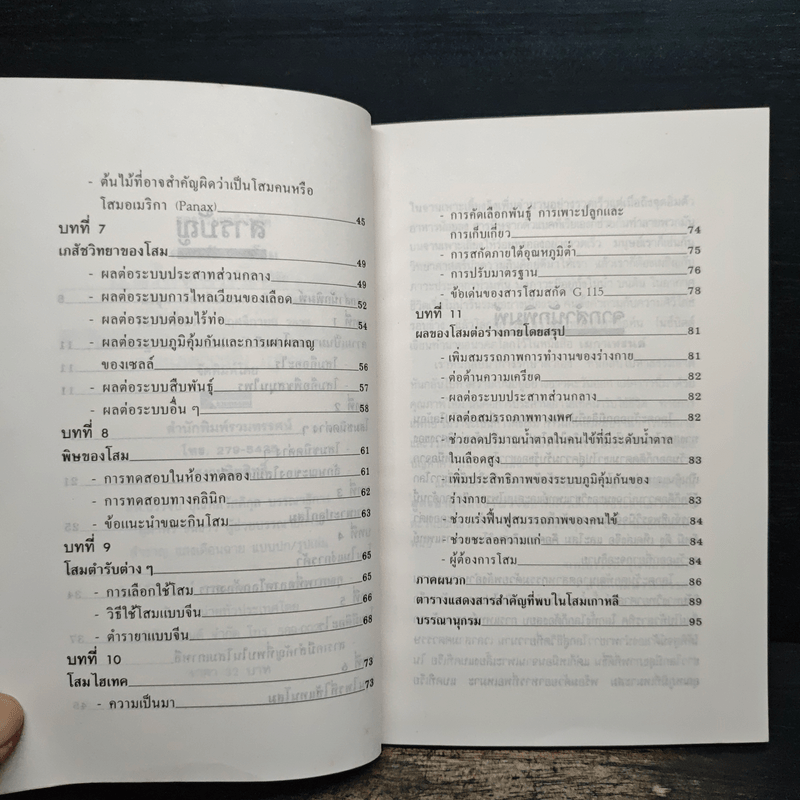 - ต้นไม้ที่อาจสำคัญผิดว่าเป็นโสมคนหรือ
โสมอเมริกา (Panax) 45
บทที่ 7
เภสัชวิทยาของโสม 49
- ผลต่อระบบประสาทส่วนกลาง 49
- ผลต่อระบบการไหลเวียนของเลือด 52
- ผลต่อระบบต่อมไร้ท่อ 54
- ผลต่อระบบภูมิคุ้มกันและการเผาผลาญ
ของเซลล์ 56
- ผลต่อระบบสืบพันธุ์ 57
- ผลต่อระบบอื่น ๆ 58
บทที่ 8
พิษของโสม 61
- การทดสอบในห้องทดลอง 61
- การทดสอบทางคลินิก 62
- ข้อแนะนำขณะกินโสม 63
บทที่ 9
โสมตำรับต่าง ๆ 65
- การเลือกใช้โสม 65
- วิธีใช้โสมแบบจีน 66
- ตำรายาแบบจีน 68
บทที่ 10
โสมไฮเทค 73
- ความเป็นมา 73
- การคัดเลือกพันธุ์ การเพาะปลูกและ
การเก็บเกี่ยว 74
- การสกัดภายใต้อุณหภูมิต่ำ 75
- การปรับมาตรฐาน 76
- ข้อเด่นของสารโสมสกัด G 115 78
บทที่ 11
ผลของโสมต่อร่างกายโดยสรุป 81
- เพิ่มสมรรถภาพการทำงานของร่างกาย 81
- ต่อต้านความเครียด 82
- ผลต่อระบบประสาทส่วนกลาง 82
- ผลต่อสมรรถภาพทางเพศ 82
- ช่วยลดปริมาณน้ำตาลในคนไข้ที่มีระดับน้ำตาล
ในเลือดสูง 83
- เพิ่มประสิทธิภาพของระบบภูมิคุ้มกันของ
ร่างกาย 83
- ช่วยเร่งฟื้นฟูสมรรถภาพของคนไข้ 84
- ช่วยชะลอความแก่ 84
- ผู้ต้องการโสม 84
ภาคผนวก 86
ตารางแสดงสารสำคัญที่พบในโสมเกาหลี 89
บรรณานุกรม 95